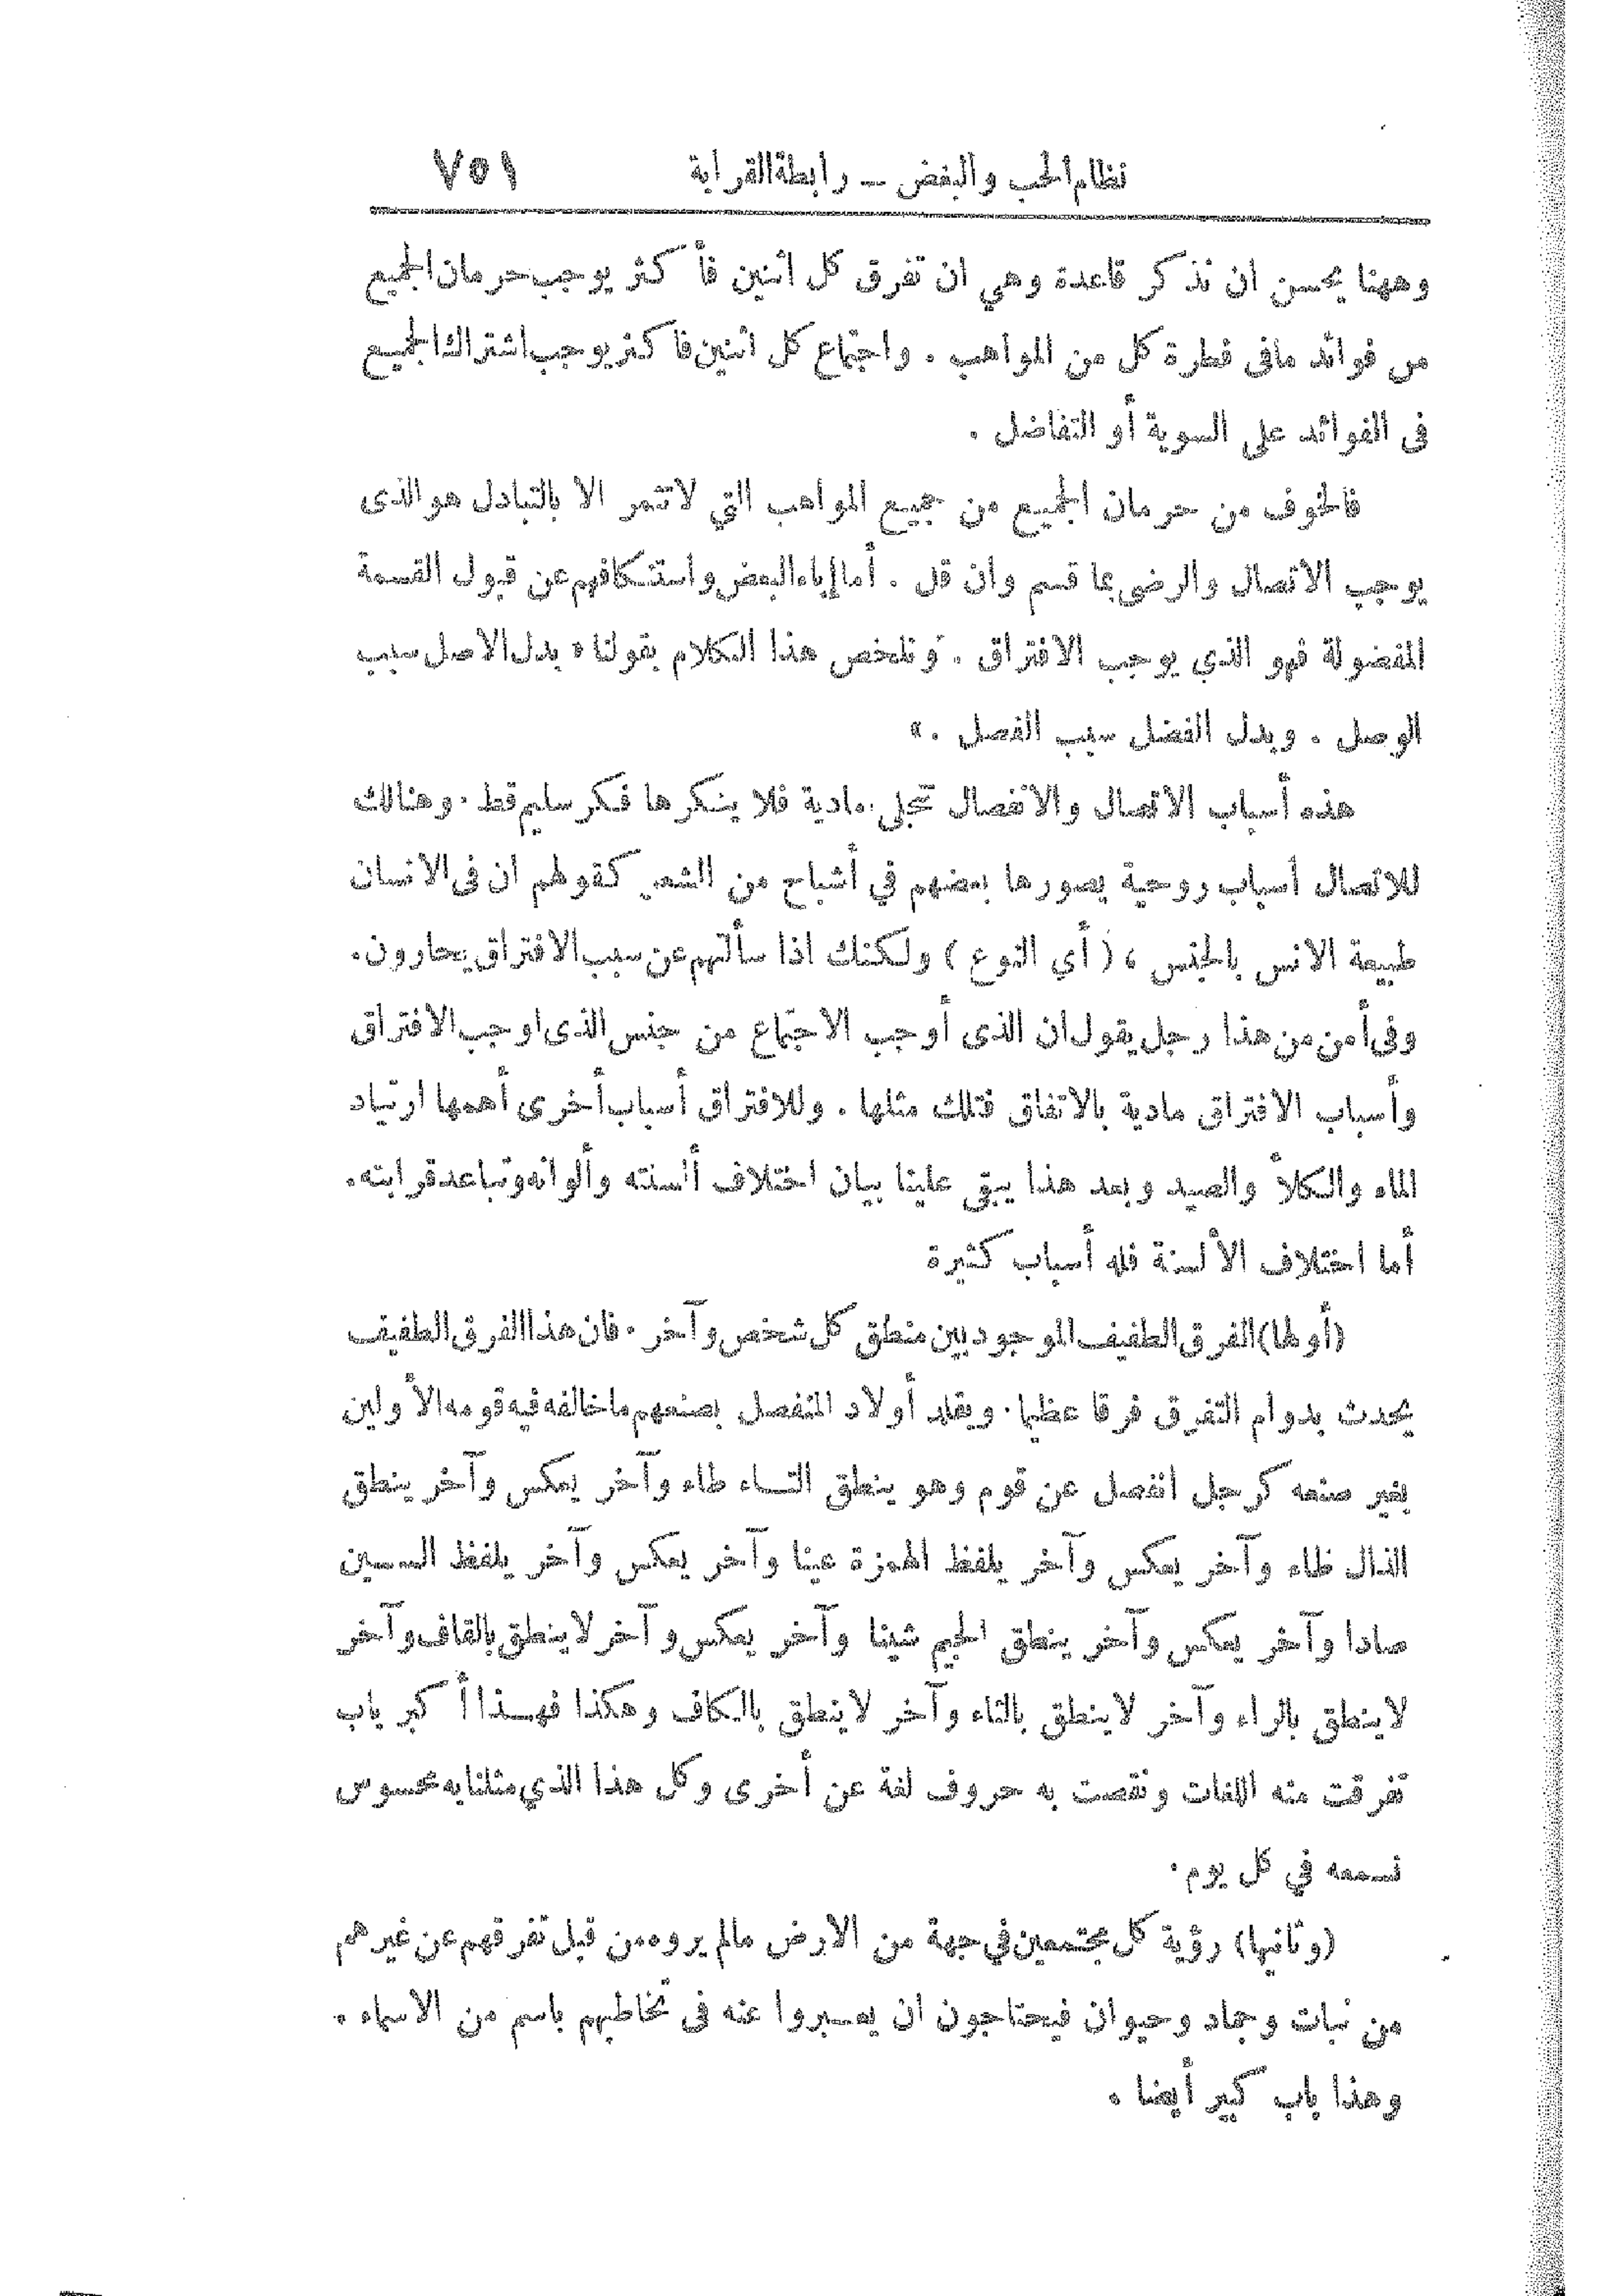 نظام الحب والبغض – رابطة القرابة ٧٥١
وههنا يحسن ان نذكر قاعدة وهي ان تفرق كل اثنين فأكثر يوجب حرمان الجميع
من فوائد مافى فطرة كل من المواهب . واجتماع كل اثنين فاكثر يوجب اشتراك الجميع
فى الفوائد على السوية أو التفاضل .
فالخوف من حرمان الجميع من جميع المواهب التي لاتثمر الا بالتبادل هو الذى
يوجب الاتصال والرضى بما قسم وان قل . أما إباء البعض واستنكافهم عن قبول القسمة
المفضولة فهو الذي يوجب الافتراق . ونلخص هذا الكلام بقولنا « بدل الاصل سبب
الوصل . وبدل الفضل سبب الفصل . »
هذه أسباب الاتصال والانفصال تجلى مادية فلا ينكرها فكر سليم قط . وهنالك
للاتصال أسباب روحية يصورها بعضهم في أشباح من الشعر كقولهم ان فى الانسان
طبيعة الانس بالجنس ، ( أي النوع ) ولكنك اذا سألتهم عن سبب الافتراق يحارون .
وفى أمن من هذا رجل يقول ان الذى أوجب الاجتماع من جنس الذى اوجب الافتراق
وأسباب الافتراق مادية بالاتفاق فتلك مثلها . وللافتراق أسباب أخرى أهمها ارتياد
الماء والكلأ والصيد وبعد هذا يبقى علينا بيان اختلاف ألسنته وألوانه وتباعد قرابته .
أما اختلاف الألسنة فله أسباب كثيرة
(أولها) الفرق الطفيف الموجود بين منطق كل شخص وآخر . فان هذا الفرق الطفيف
يحدث بدوام التفرق فرقا عظيما . ويقلد أولاد المنفصل بصنعهم ماخالفه فيه قومه الأولين
بغير صنعه كرجل انفصل عن قوم وهو ينطق التاء طاء وآخر يعكس وآخر ينطق
الذال ظاء وآخر يعكس وآخر يلفظ الهمزة عينا وآخر يعكس وآخر يلفظ السين
صادا وآخر يعكس وآخر ينطق الجيم شينا وآخر يعكس وآخر لا ينطق بالقاف وآخر
لا ينطق بالراء وآخر لاينطق بالثاء وآخر لاينطق بالكاف وهكذا فهذا أكبر باب
تفرقت منه اللغات ونقصت به حروف لغة عن أخرى وكل هذا الذي مثلنا به محسوس
نسمعه في كل يوم .
(وثانيها) رؤية كل مجتمعين في جهة من الارض مالم يروه من قبل تفرقهم عن غيرهم
من نبات وجماد وحيوان فيحتاجون ان يعبروا عنه فى تخاطبهم باسم من الاسماء .
وهذا باب كبير أيضا .